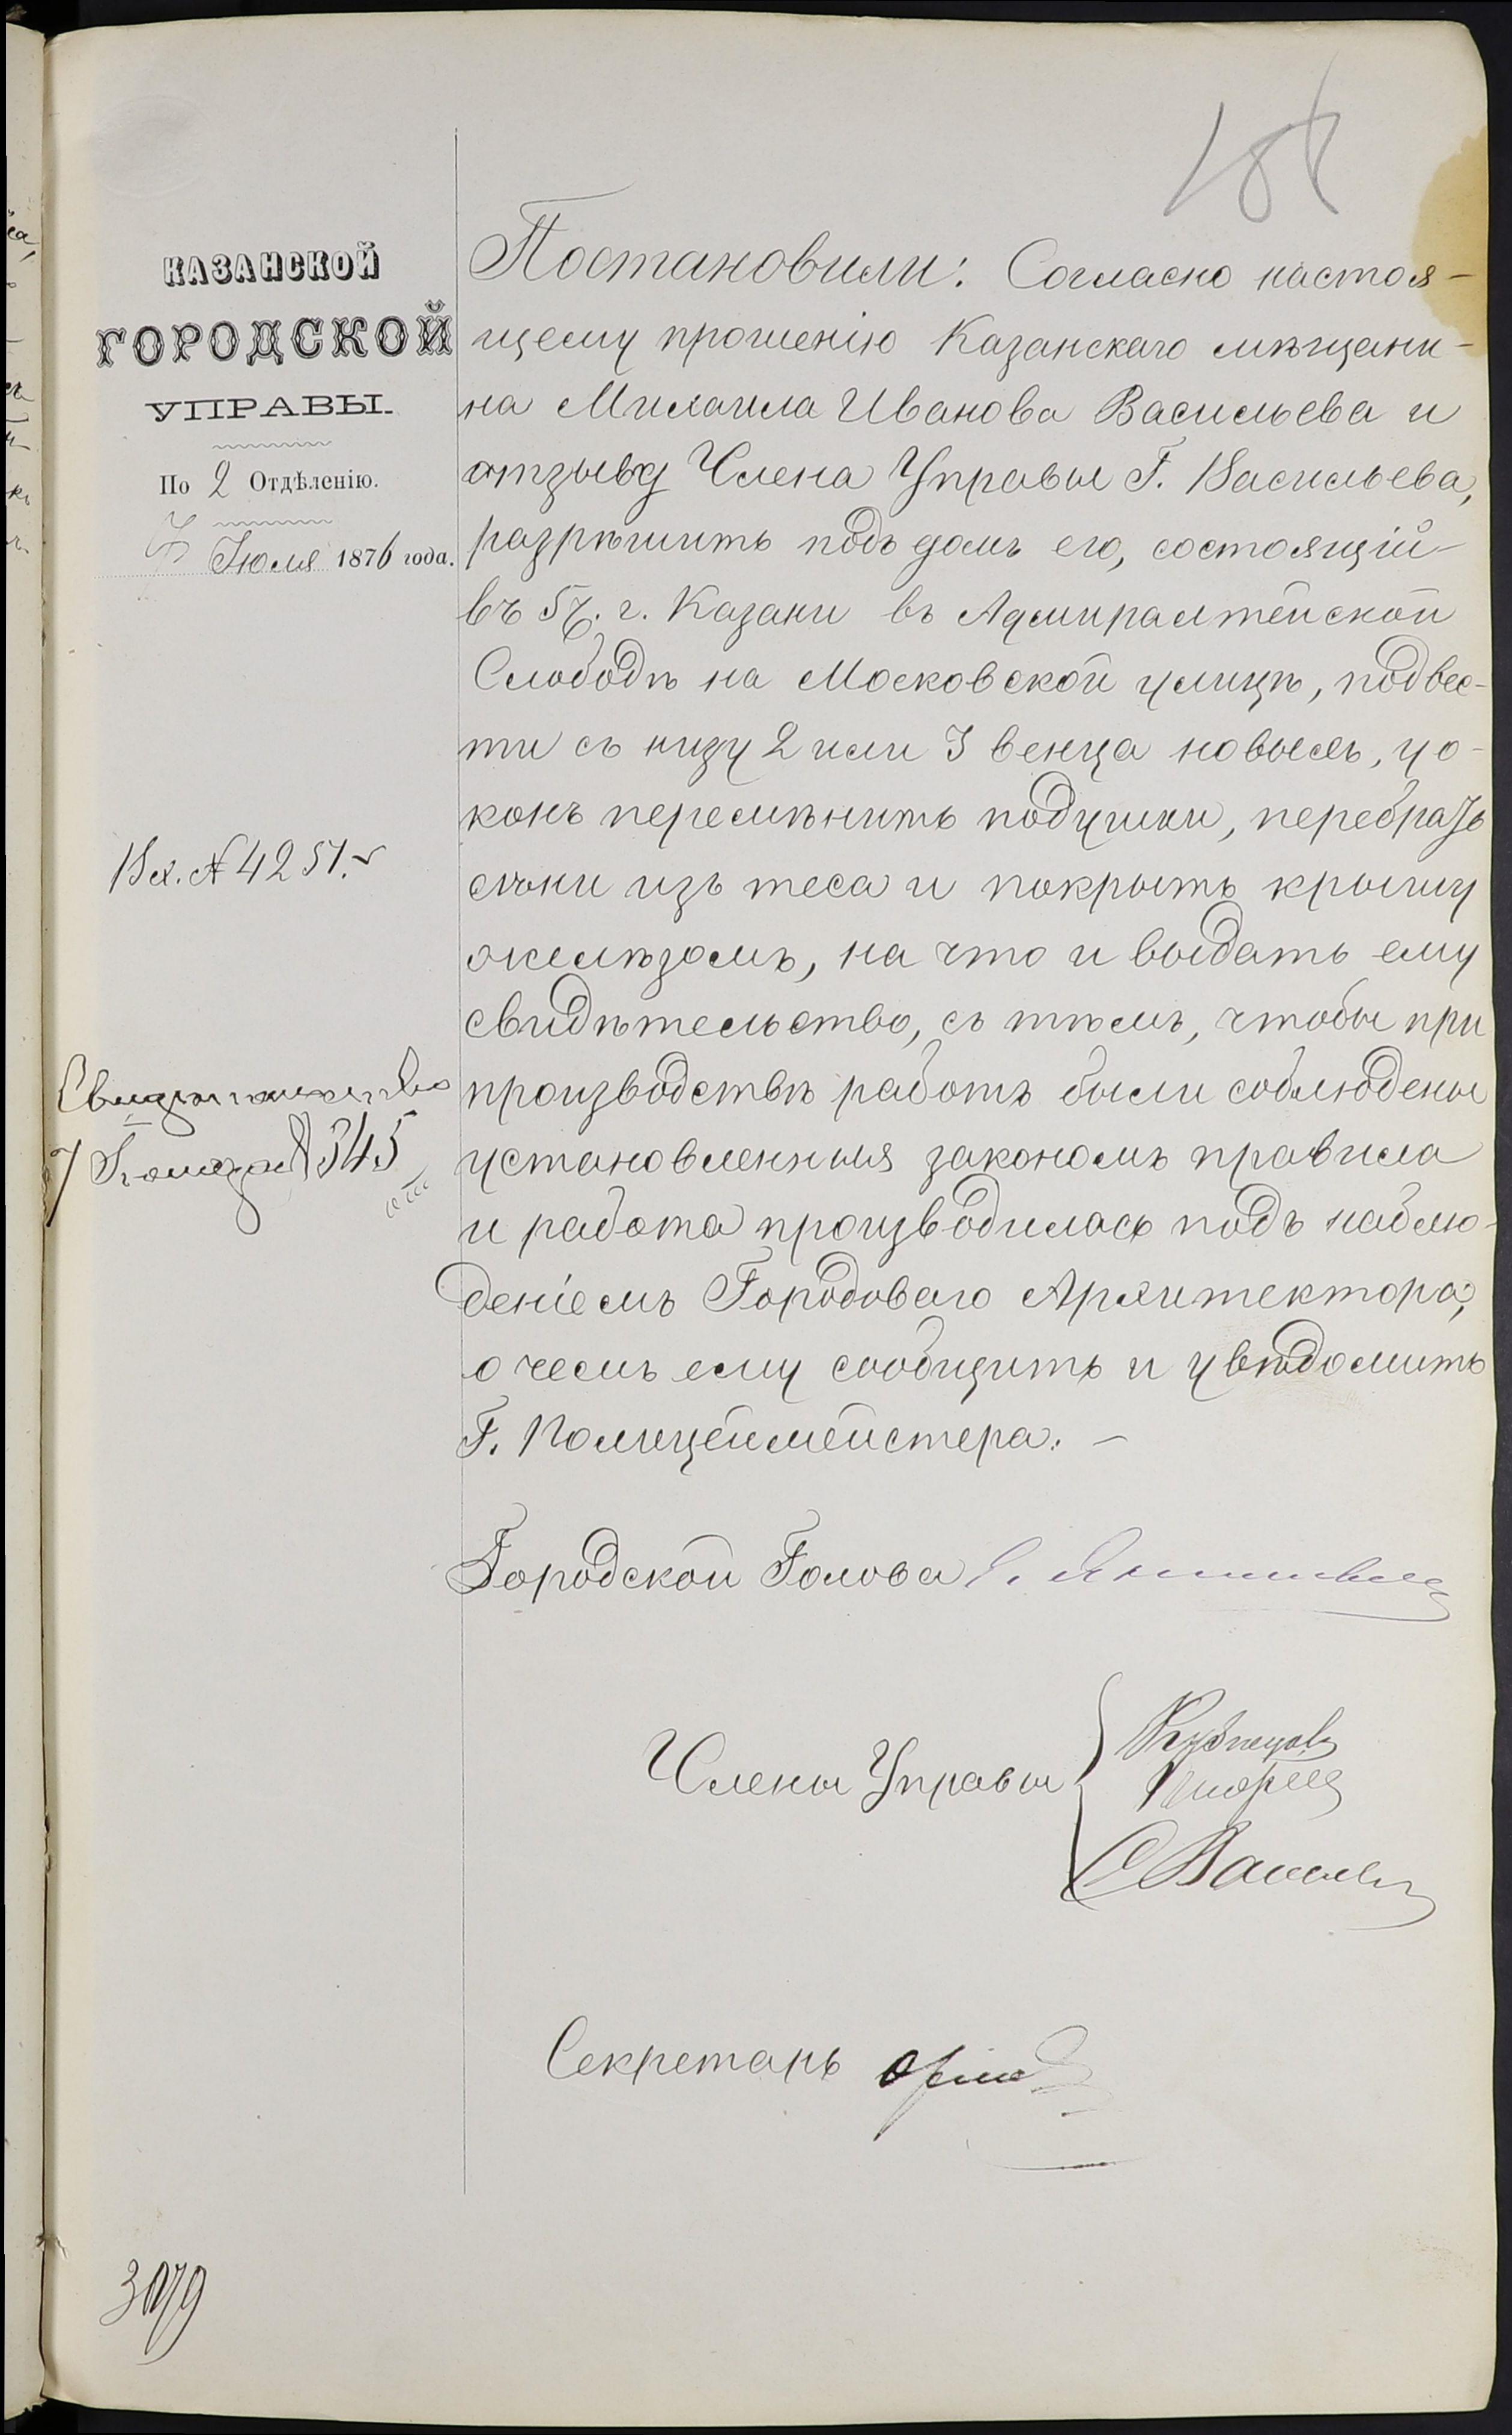 КАЗАНСКОЙ
ГОРОДСКОЙ
УПРАВЫ.
По 2 Отдѣленію.
7 Іюля 1876 года.
Вх. № 4251.
Свидѣтельство
7 Іюля № 345
3079
Постановили: Согласно настоя-
щему прошенію Казанскаго мѣщани-
на Михаила Иванова Васильева и
отзыву Члена Управы Г. Васильева,
разрѣшить подъ домъ его, состоящій
въ 5 ч. г. Казани въ Адмиралтейской
Слободѣ на Московской улицѣ, подвес-
ти съ низу 2 или 3 венца новыхъ, у о-
конъ перемѣнить подушки, перебрать
сѣни изъ теса и покрыть крышу
желѣзомъ, на что и выдать ему
свидѣтельство, съ тѣмъ, чтобы при
производствѣ работъ были соблюдены
установленныя закономъ правила
и работа производилась подъ наблю-
деніемъ Городоваго Архитектора,
о чемъ ему сообщить и увѣдомить
Г. Полицеймейстера. –
Городской Голова
Члены Управы
Кузнецовъ
С Васильев
Секретарь